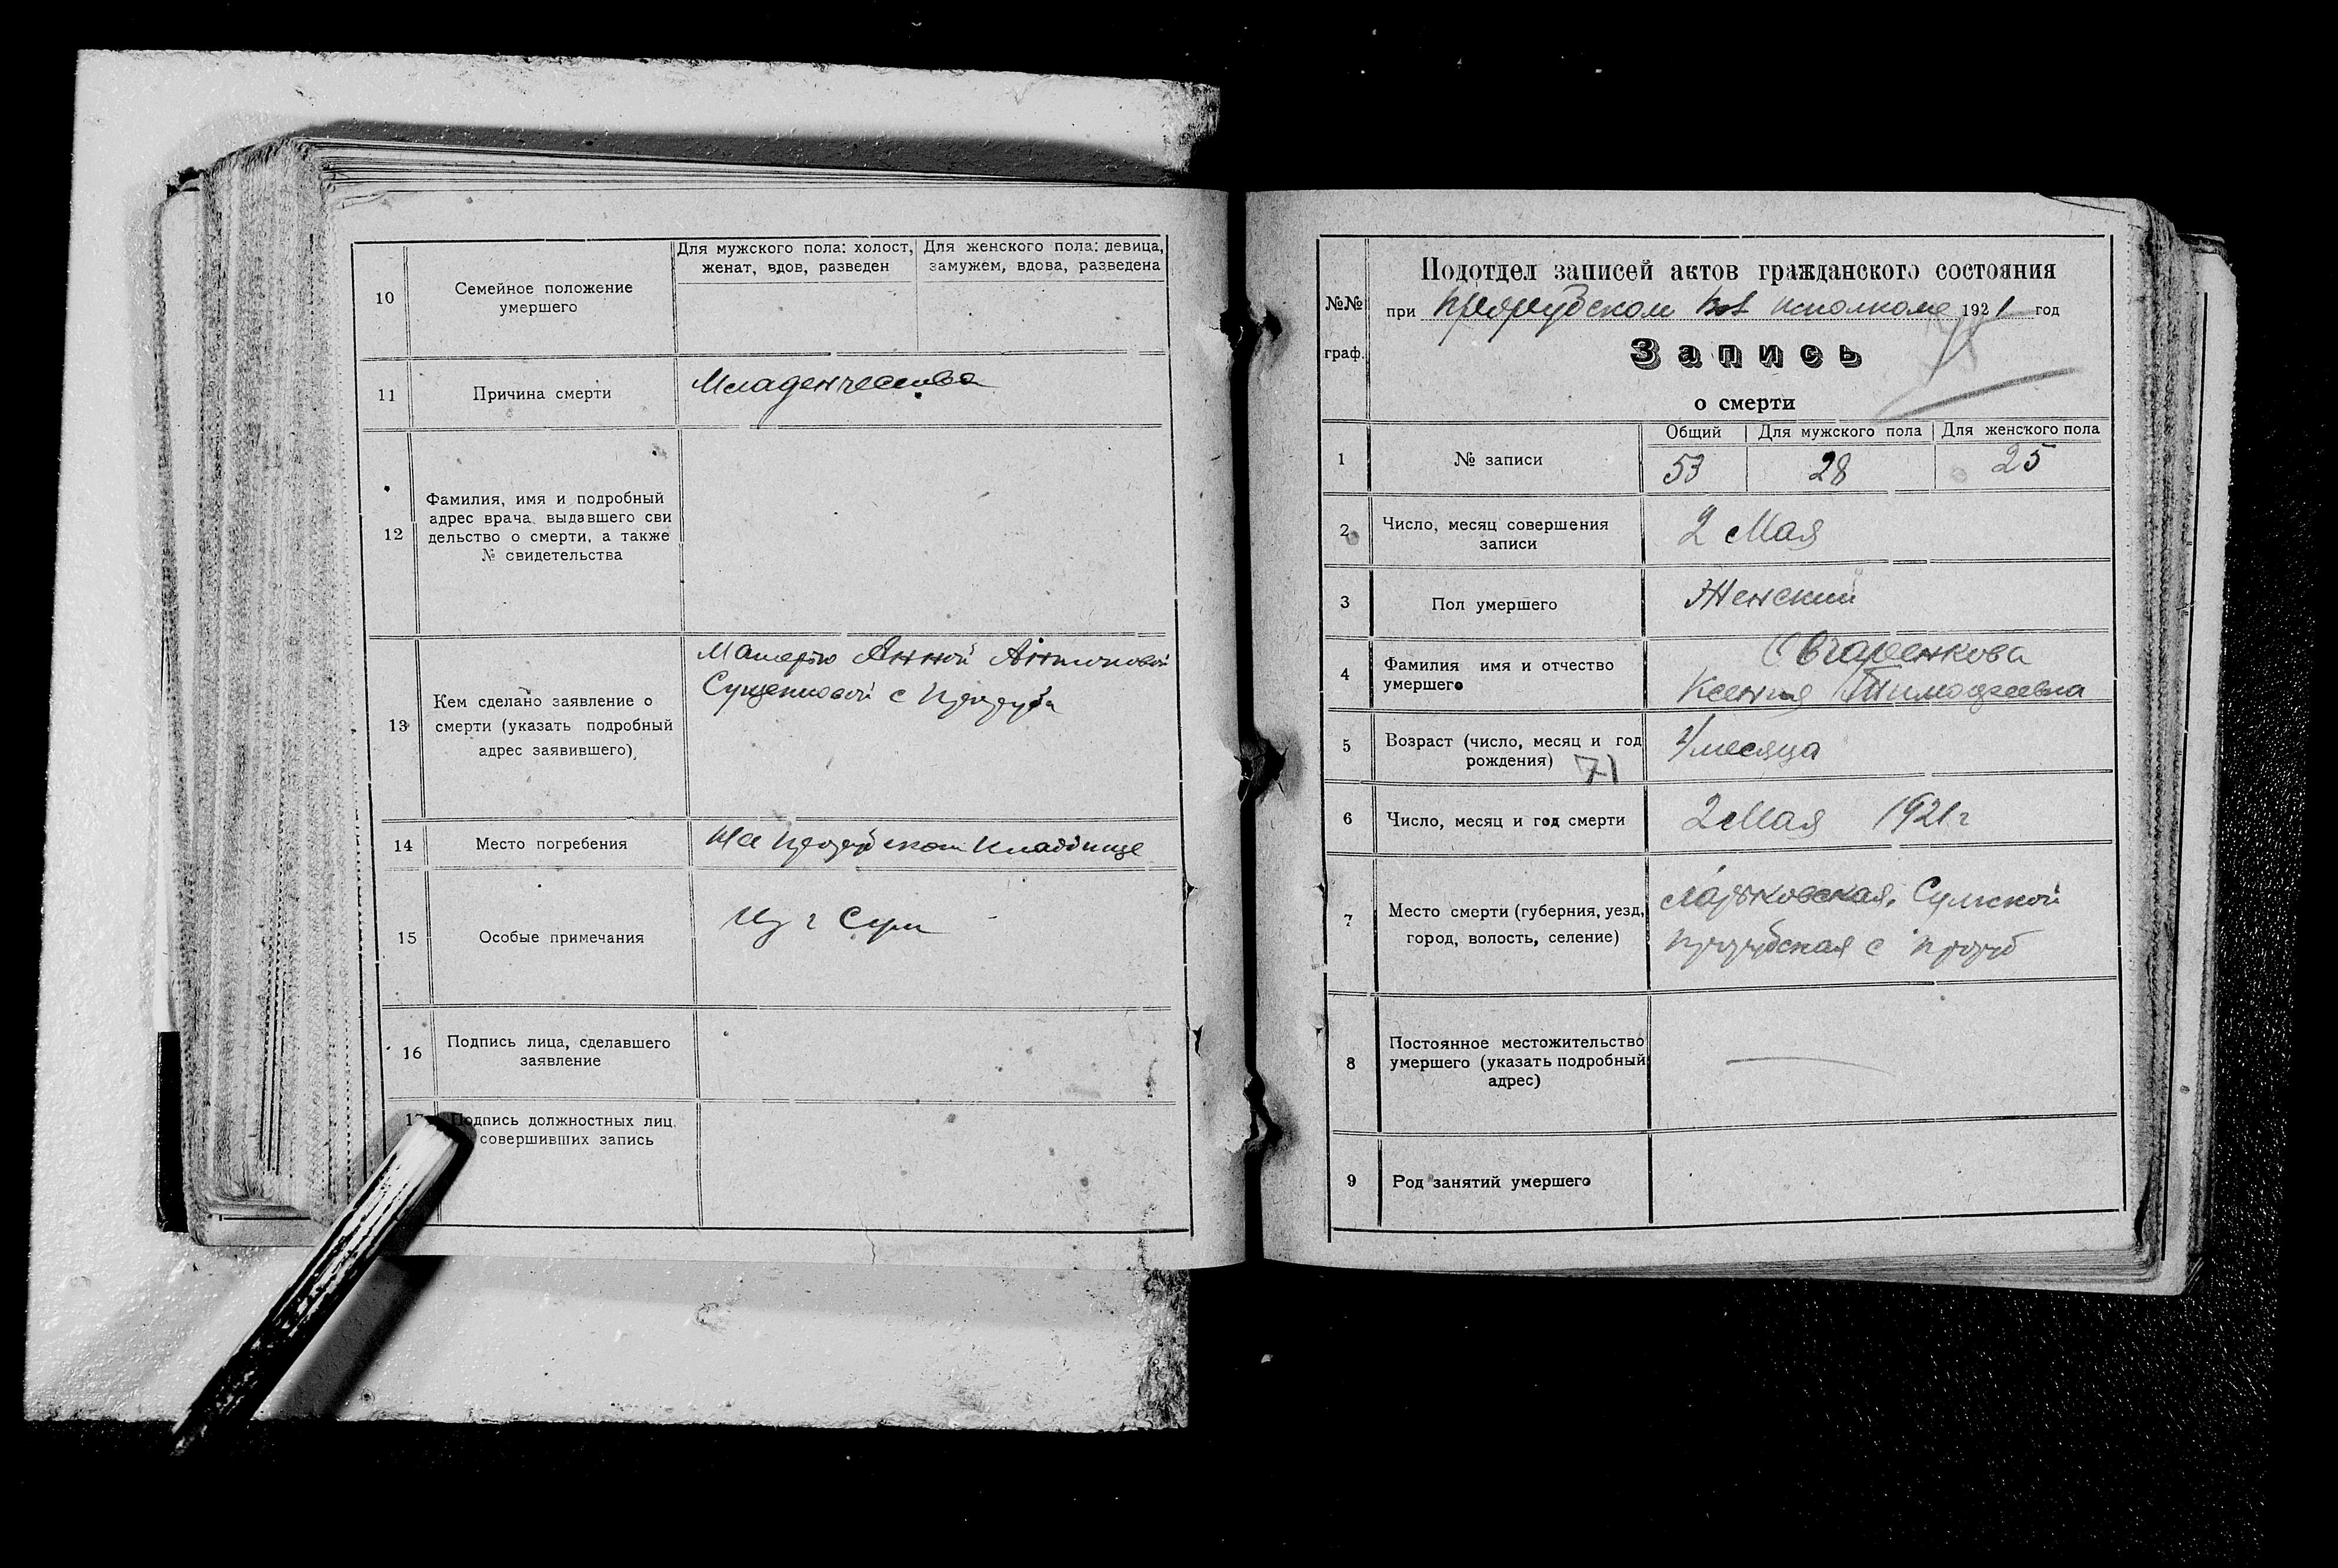 10
Семейное положение
умершего
Для мужского пола: холост,
женат, вдов, разведен
Для женского пола: девица,
замужем, вдова, разведена
11
Причина смерти
Младенчества
12
Фамилия, имя и подробный
адрес врача, выдавшего сви
дельство о смерти, а также
№ свидетельства
13
Кем сделано заявление о
смерти (указать подробный
адрес заявившего)
Матерью Анной Антоновой
с
14
Место погребения
На кладбище
15
Особые примечания
Из г Сум
16
Подпись лица, сделавшего
заявление
17
Подпись должностных лиц,
совершивших запись
№№
граф.
Подотдел записей актов гражданского состояния
при Вол исполкоме 1921 год
Запись
о смерти
1
№ записи
Общий
Для мужского пола
Для женского пола
53
28
25
2
Число, месяц совершения
записи
2 Мая
3
Пол умершего
Женский
4
Фамилия имя и отчество
умершего
Овчаренкова
Ксения Тимофеевна
5
Возраст (число, месяц и год
рождения)
71
4 месяца
6
Число, месяц и год смерти
2 Мая 1921 г
7
Место смерти (губерния, уезд,
город, волость, селение)
Харьковская, Сумской
с
8
Постоянное местожительство
умершего (указать подробный
адрес)
9
Род занятий умершего